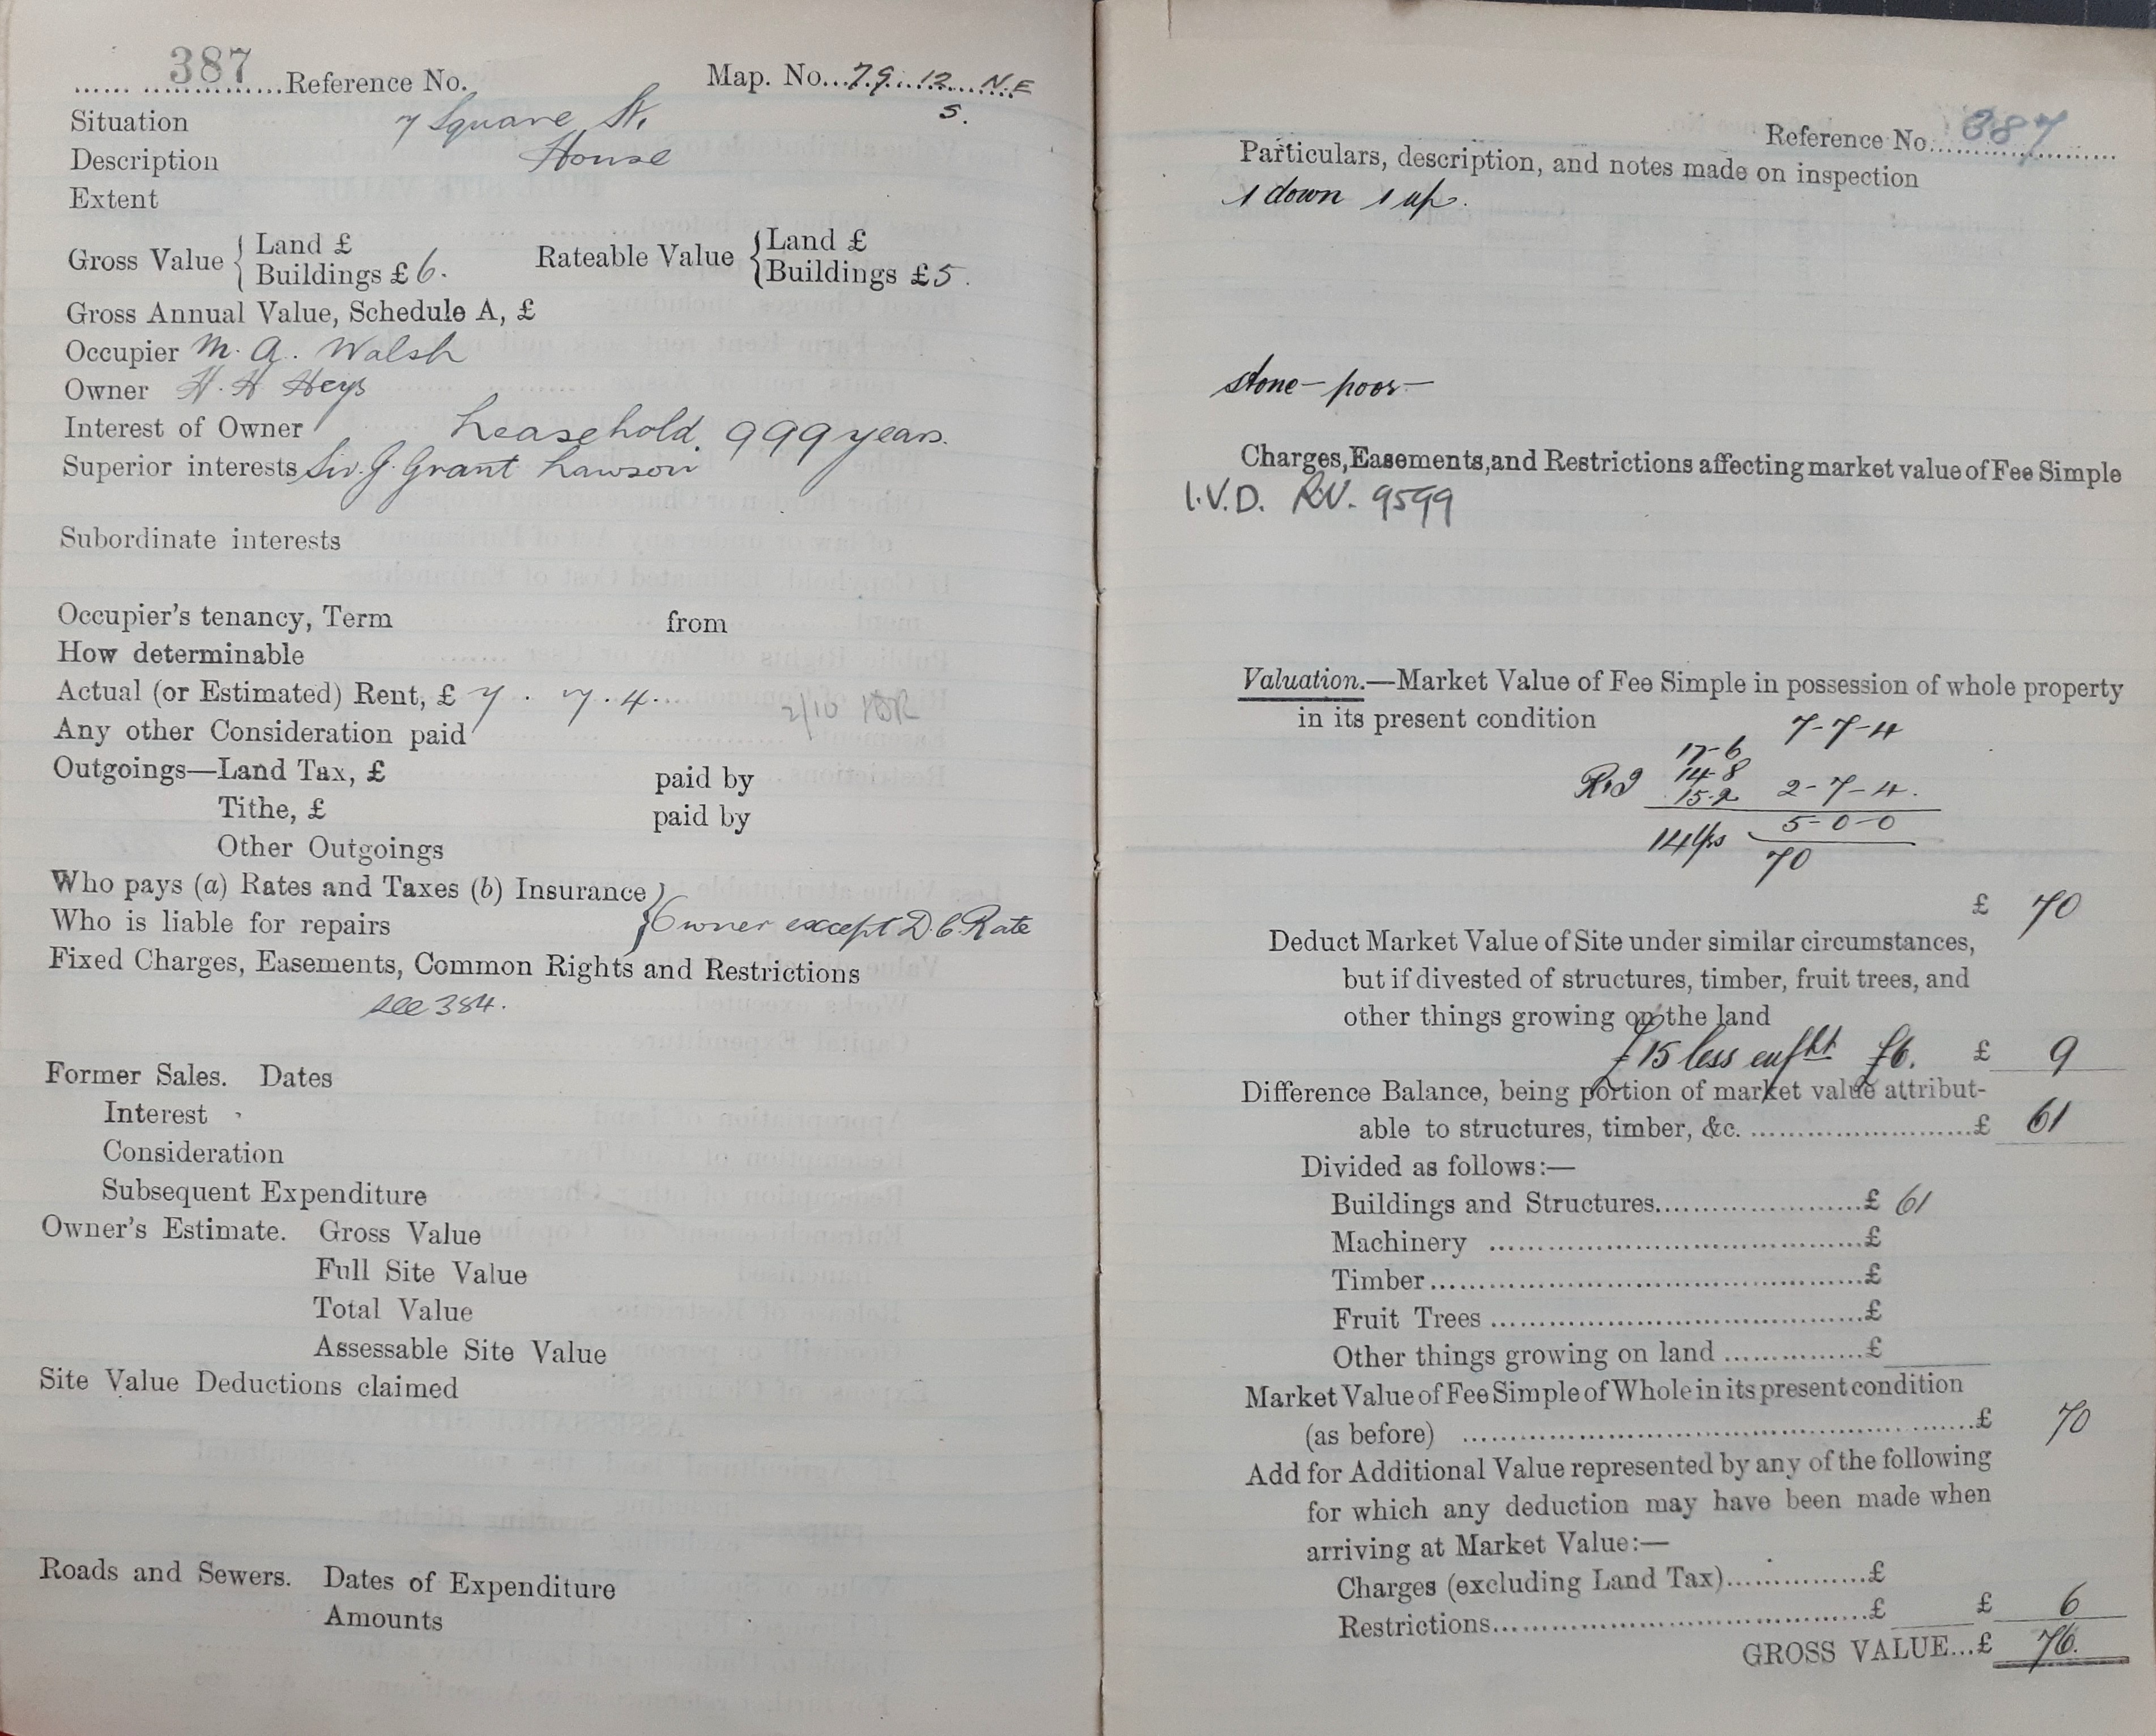 387 Reference No. Map. No. 79. 12. N.E
S.
Situation 7 Square St.
Description House
Extent
Gross Value { Land £ Rateable Value { Land £
Buildings £ 6. Buildings £5.
Gross Annual Value, Schedule A, £
Occupier M. A. Walsh
Owner H. H Heys
Interest of Owner Leasehold. 999 years.
Superior interests Sir. J. Grant Lawson
Subordinate interests
Occupier's tenancy, Term from
How determinable
Actual (or Estimated) Rent, £ 7. 7. 4. 2/10
Any other Consideration paid
Outgoings—Land Tax, £ paid by
Tithe, £ paid by
Other Outgoings
Who pays (a) Rates and Taxes (b) Insurance }
Who is liable for repairs } Owner except D. C. Rate
Fixed Charges, Easements, Common Rights and Restrictions
see 384.
Former Sales. Dates
Interest
Consideration
Subsequent Expenditure
Owner's Estimate. Gross Value
Full Site Value
Total Value
Assessable Site Value
Site Value Deductions claimed
Roads and Sewers. Dates of Expenditure
Amounts
Reference No. 387
Particulars, description, and notes made on inspection
1 down 1 up.
stone — poor —
Charges, Easements, and Restrictions affecting market value of Fee Simple
I.V.D. RV. 9599
Valuation.—Market Value of Fee Simple in possession of whole property
in its present condition 7-7-4
17-6
14-8
15-2 2-7-4.
5-0-0
14 Yrs 70
£ 70
Deduct Market Value of Site under similar circumstances,
but if divested of structures, timber, fruit trees, and
other things growing on the land
£15 less £6. £ 9
Difference Balance, being portion of market value attribut-
able to structures, timber, &c. £ 61
Divided as follows:—
Buildings and Structures £ 61
Machinery £
Timber £
Fruit Trees £
Other things growing on land £
Market Value of Fee Simple of Whole in its present condition
(as before) £ 70
Add for Additional Value represented by any of the following
for which any deduction may have been made when
arriving at Market Value:—
Charges (excluding Land Tax) £
Restrictions £ £ 6
GROSS VALUE...£ 76.